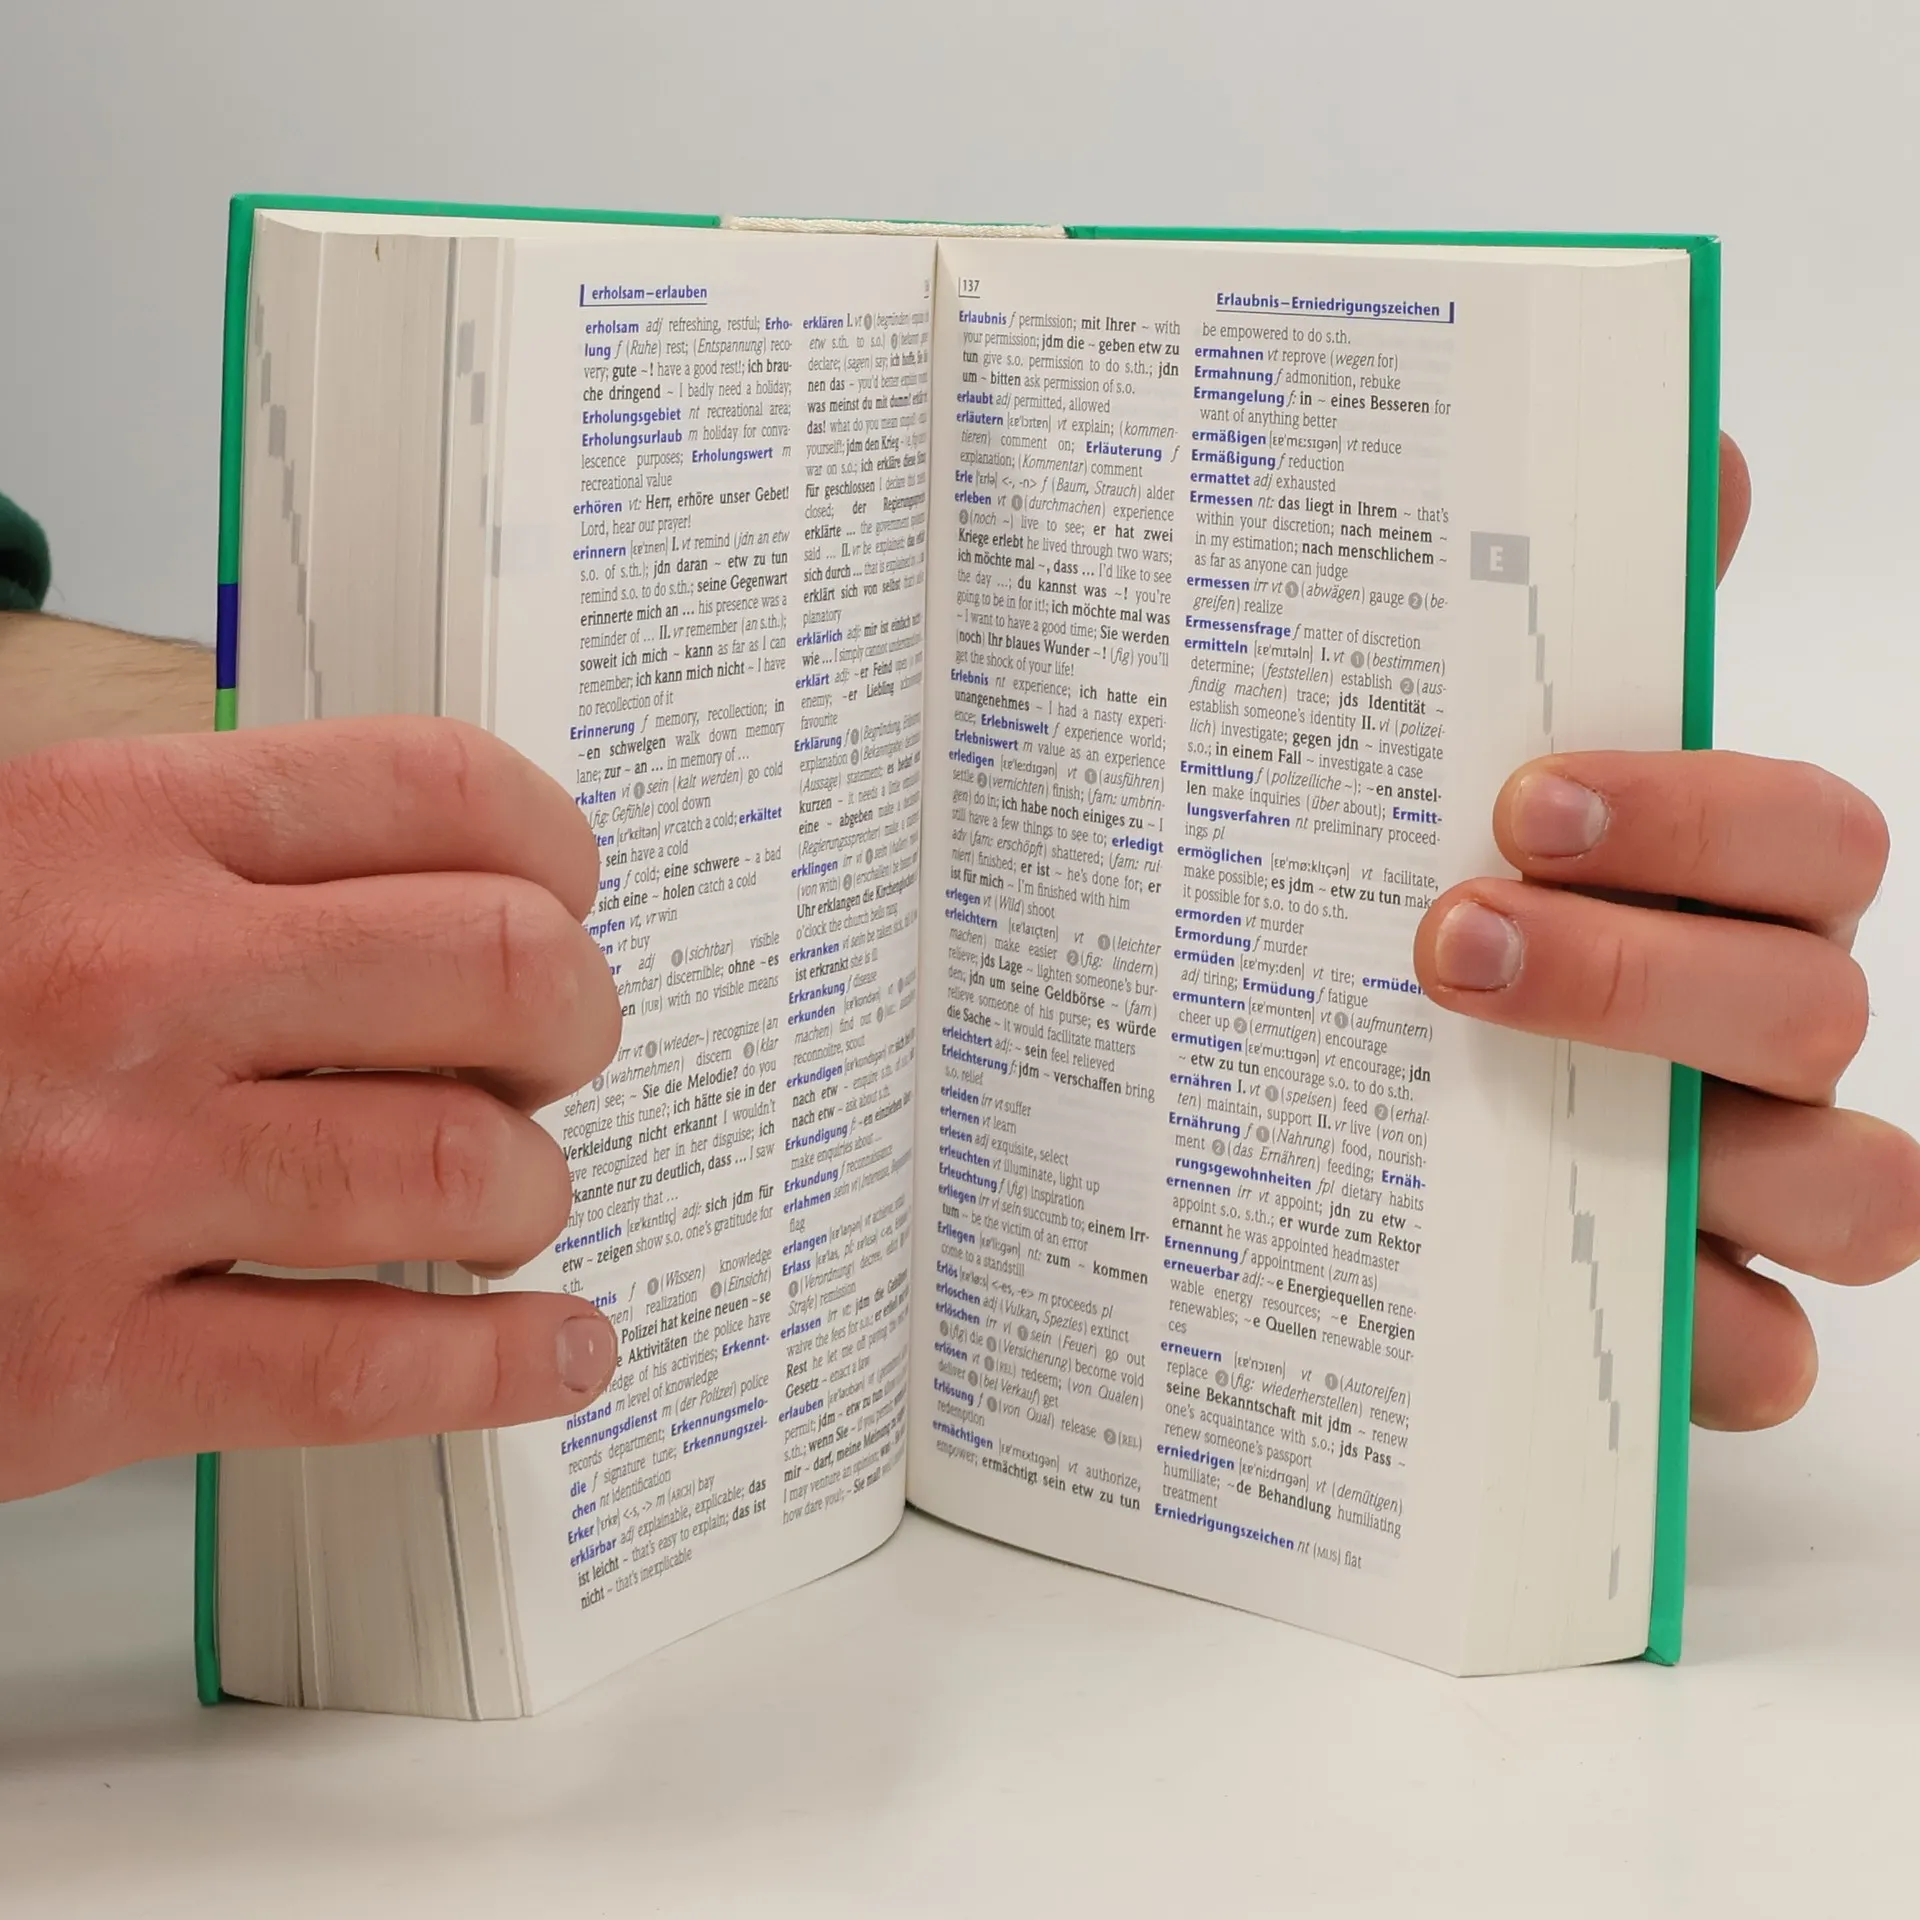 erholsam–erlauben
erholsam adj refreshing, restful; Erho-
lung f (Ruhe) rest; (Entspannung) reco-
very; gute ~! have a good rest!; ich brau-
che dringend ~ I badly need a holiday;
Erholungsgebiet nt recreational area;
Erholungsurlaub m holiday for conva-
lescence purposes; Erholungswert m
recreational value
erhören vt: Herr, erhöre unser Gebet!
Lord, hear our prayer!
erinnern [ɛɐ'ɪnɐn] I. vt remind (jdn an etw
s.o. of s.th.); jdn daran ~ etw zu tun
remind s.o. to do s.th.; seine Gegenwart
erinnerte mich an ... his presence was a
reminder of ... II. vr remember (an s.th.);
soweit ich mich ~ kann as far as I can
remember; ich kann mich nicht ~ I have
no recollection of it
Erinnerung f memory, recollection; in
~en schwelgen walk down memory
lane; zur ~ an ... in memory of ...
rkalten vi ① sein (kalt werden) go cold
(fig: Gefühle) cool down
ten [ɛɐ'kɛltən] vr catch a cold; erkältet
sein have a cold
ung f cold; eine schwere ~ a bad
; sich eine ~ holen catch a cold
mpfen vt, vr win
en vt buy
ar adj ① (sichtbar) visible
ehmbar) discernible; ohne ~es
en (JUR) with no visible means
irr vt ① (wieder~) recognize (an
② (wahrnehmen) discern ③ (klar
sehen) see; ~ Sie die Melodie? do you
recognize this tune?; ich hätte sie in der
Verkleidung nicht erkannt I wouldn't
ave recognized her in her disguise; ich
kannte nur zu deutlich, dass ... I saw
nly too clearly that ...
erkenntlich [ɛɐ'kɛntlɪç] adj: sich jdm für
etw ~ zeigen show s.o. one's gratitude for
s.th.
ntnis f ① (Wissen) knowledge
nen) realization ③ (Einsicht)
Polizei hat keine neuen ~se
e Aktivitäten the police have
ledge of his activities; Erkennt-
nisstand m level of knowledge
Erkennungsdienst m (der Polizei) police
records department; Erkennungsmelo-
die f signature tune; Erkennungszei-
chen nt identification
Erker ['ɛrkɐ] <-s, -> m (ARCH) bay
erklärbar adj explainable, explicable; das
ist leicht ~ that's easy to explain; das ist
nicht ~ that's inexplicable
erklären I. vt ① (begründen)
etw s.th. to s.o.) ②
declare; (sagen) say; ich hoffe, Sie
nen das ~ you'd better explain
was meinst du mit dumm!
das! what do you mean
yourself!; jdm den Krieg ~
war on s.o.; ich erkläre diese
für geschlossen I declare this
closed; der Regierungs
erklärte ... the government
said ... II. vr be explained;
sich durch ... that is explained
erklärt sich von selbst that's
planatory
erklärlich adj: mir ist einfach
wie ... I simply cannot
erklärt adj: ~er Feind open
enemy; ~er Liebling
favourite
Erklärung f ① (Begründung,
explanation ② (Bekanntgabe)
(Aussage) statement; es bedarf
kurzen ~ it needs a little
eine ~ abgeben make a
(Regierungssprecher) make a
erklingen irr vi ① sein
(von with) ② (erschallen) be
Uhr erklangen die Kirchenglocken
o'clock the church bells rang
erkranken vi sein be taken sick,
ist erkrankt she is ill
Erkrankung f disease
erkunden [ɛɐ'kʊndən] vt ①
machen) find out ②
reconnoitre, scout
erkundigen [ɛɐ'kʊndɪgən] vr: sich
nach etw ~ enquire
nach etw ~ ask about s.th.
Erkundigung f: ~en einziehen
make enquiries about ...
Erkundung f reconnaissance
erlahmen sein vi (Interesse,
flag
erlangen [ɛɐ'laŋən] vt achieve,
Erlass
① (Verordnung) decree,
Strafe) remission
erlassen irr vt: jdm die Gebühren
waive the fees for s.o.; er
Rest he let me off paying
Gesetz ~ enact a law
erlauben [ɛɐ'laʊbən] vt
permit; jdm ~ etw zu tun
s.th.; wenn Sie ~ if you permit;
mir ~ darf, meine Meinung zu
I may venture an opinion; was
how dare you!; ~ Sie mal!
137
Erlaubnis–Erniedrigungszeichen
Erlaubnis f permission; mit Ihrer ~ with
your permission; jdm die ~ geben etw zu
tun give s.o. permission to do s.th.; jdn
um ~ bitten ask permission of s.o.
erlaubt adj permitted, allowed
erläutern [ɛɐ'lɔɪtɐn] vt explain; (kommen-
tieren) comment on; Erläuterung f
explanation; (Kommentar) comment
Erle ['ɛrlə] <-, -n> f (Baum, Strauch) alder
erleben vt ① (durchmachen) experience
② (noch ~) live to see; er hat zwei
Kriege erlebt he lived through two wars;
ich möchte mal ~, dass ... I'd like to see
the day ...; du kannst was ~! you're
going to be in for it!; ich möchte mal was
~ I want to have a good time; Sie werden
(noch) Ihr blaues Wunder ~! (fig) you'll
get the shock of your life!
Erlebnis nt experience; ich hatte ein
unangenehmes ~ I had a nasty experi-
ence; Erlebniswelt f experience world;
Erlebniswert m value as an experience
erledigen [ɛɐ'le:dɪgən] vt ① (ausführen)
settle ② (vernichten) finish; (fam: umbrin-
gen) do in; ich habe noch einiges zu ~ I
still have a few things to see to; erledigt
adv (fam: erschöpft) shattered; (fam: rui-
niert) finished; er ist ~ he's done for; er
ist für mich ~ I'm finished with him
erlegen vt (Wild) shoot
erleichtern [ɛɐ'laɪçtɐn] vt ① (leichter
machen) make easier ② (fig: lindern)
relieve; jds Lage ~ lighten someone's bur-
den; jdn um seine Geldbörse ~ (fam)
relieve someone of his purse; es würde
die Sache ~ it would facilitate matters
erleichtert adj: ~ sein feel relieved
Erleichterung f: jdm ~ verschaffen bring
s.o. relief
erleiden irr vt suffer
erlernen vt learn
erlesen adj exquisite, select
erleuchten vt illuminate, light up
Erleuchtung f (fig) inspiration
erliegen irr vi sein succumb to; einem Irr-
tum ~ be the victim of an error
Erliegen [ɛɐ'li:gən] nt: zum ~ kommen
come to a standstill
Erlös [ɛɐ'lø:s] <-es, -e> m proceeds pl
erloschen adj (Vulkan, Spezies) extinct
erlöschen irr vi ① sein (Feuer) go out
② (fig) die ③ (Versicherung) become void
erlösen vt ① (REL) redeem; (von Qualen)
deliver ② (bei Verkauf) get
Erlösung f ① (von Qual) release ② (REL)
redemption
ermächtigen [ɛɐ'mɛxtɪgən] vt authorize,
empower; ermächtigt sein etw zu tun
be empowered to do s.th.
ermahnen vt reprove (wegen for)
Ermahnung f admonition, rebuke
Ermangelung f: in ~ eines Besseren for
want of anything better
ermäßigen [ɛɐ'mɛ:sɪgən] vt reduce
Ermäßigung f reduction
ermattet adj exhausted
Ermessen nt: das liegt in Ihrem ~ that's
within your discretion; nach meinem ~
in my estimation; nach menschlichem ~
as far as anyone can judge
ermessen irr vt ① (abwägen) gauge ② (be-
greifen) realize
Ermessensfrage f matter of discretion
ermitteln [ɛɐ'mɪtəln] I. vt ① (bestimmen)
determine; (feststellen) establish ② (aus-
findig machen) trace; jds Identität ~
establish someone's identity II. vi (polizei-
lich) investigate; gegen jdn ~ investigate
s.o.; in einem Fall ~ investigate a case
Ermittlung f (polizeiliche ~): ~en anstel-
len make inquiries (über about); Ermitt-
lungsverfahren nt preliminary proceed-
ings pl
ermöglichen [ɛɐ'mø:klɪçən] vt facilitate,
make possible; es jdm ~ etw zu tun make
it possible for s.o. to do s.th.
ermorden vt murder
Ermordung f murder
ermüden [ɛɐ'my:dən] vt tire; ermüden
adj tiring; Ermüdung f fatigue
ermuntern [ɛɐ'mʊntɐn] vt ① (aufmuntern)
cheer up ② (ermutigen) encourage
ermutigen [ɛɐ'mu:tɪgən] vt encourage; jdn
~ etw zu tun encourage s.o. to do s.th.
ernähren I. vt ① (speisen) feed ② (erhal-
ten) maintain, support II. vr live (von on)
Ernährung f ① (Nahrung) food, nourish-
ment ② (das Ernähren) feeding; Ernäh-
rungsgewohnheiten fpl dietary habits
ernennen irr vt appoint; jdn zu etw ~
appoint s.o. s.th.; er wurde zum Rektor
ernannt he was appointed headmaster
Ernennung f appointment (zum as)
erneuerbar adj: ~e Energiequellen rene-
wable energy resources; ~e Energien
renewables; ~e Quellen renewable sour-
ces
erneuern [ɛɐ'nɔɪɐn] vt ① (Autoreifen)
replace ② (fig: wiederherstellen) renew;
seine Bekanntschaft mit jdm ~ renew
one's acquaintance with s.o.; jds Pass ~
renew someone's passport
erniedrigen [ɛɐ'ni:drɪgən] vt (demütigen)
humiliate; ~de Behandlung humiliating
treatment
Erniedrigungszeichen nt (MUS) flat
E